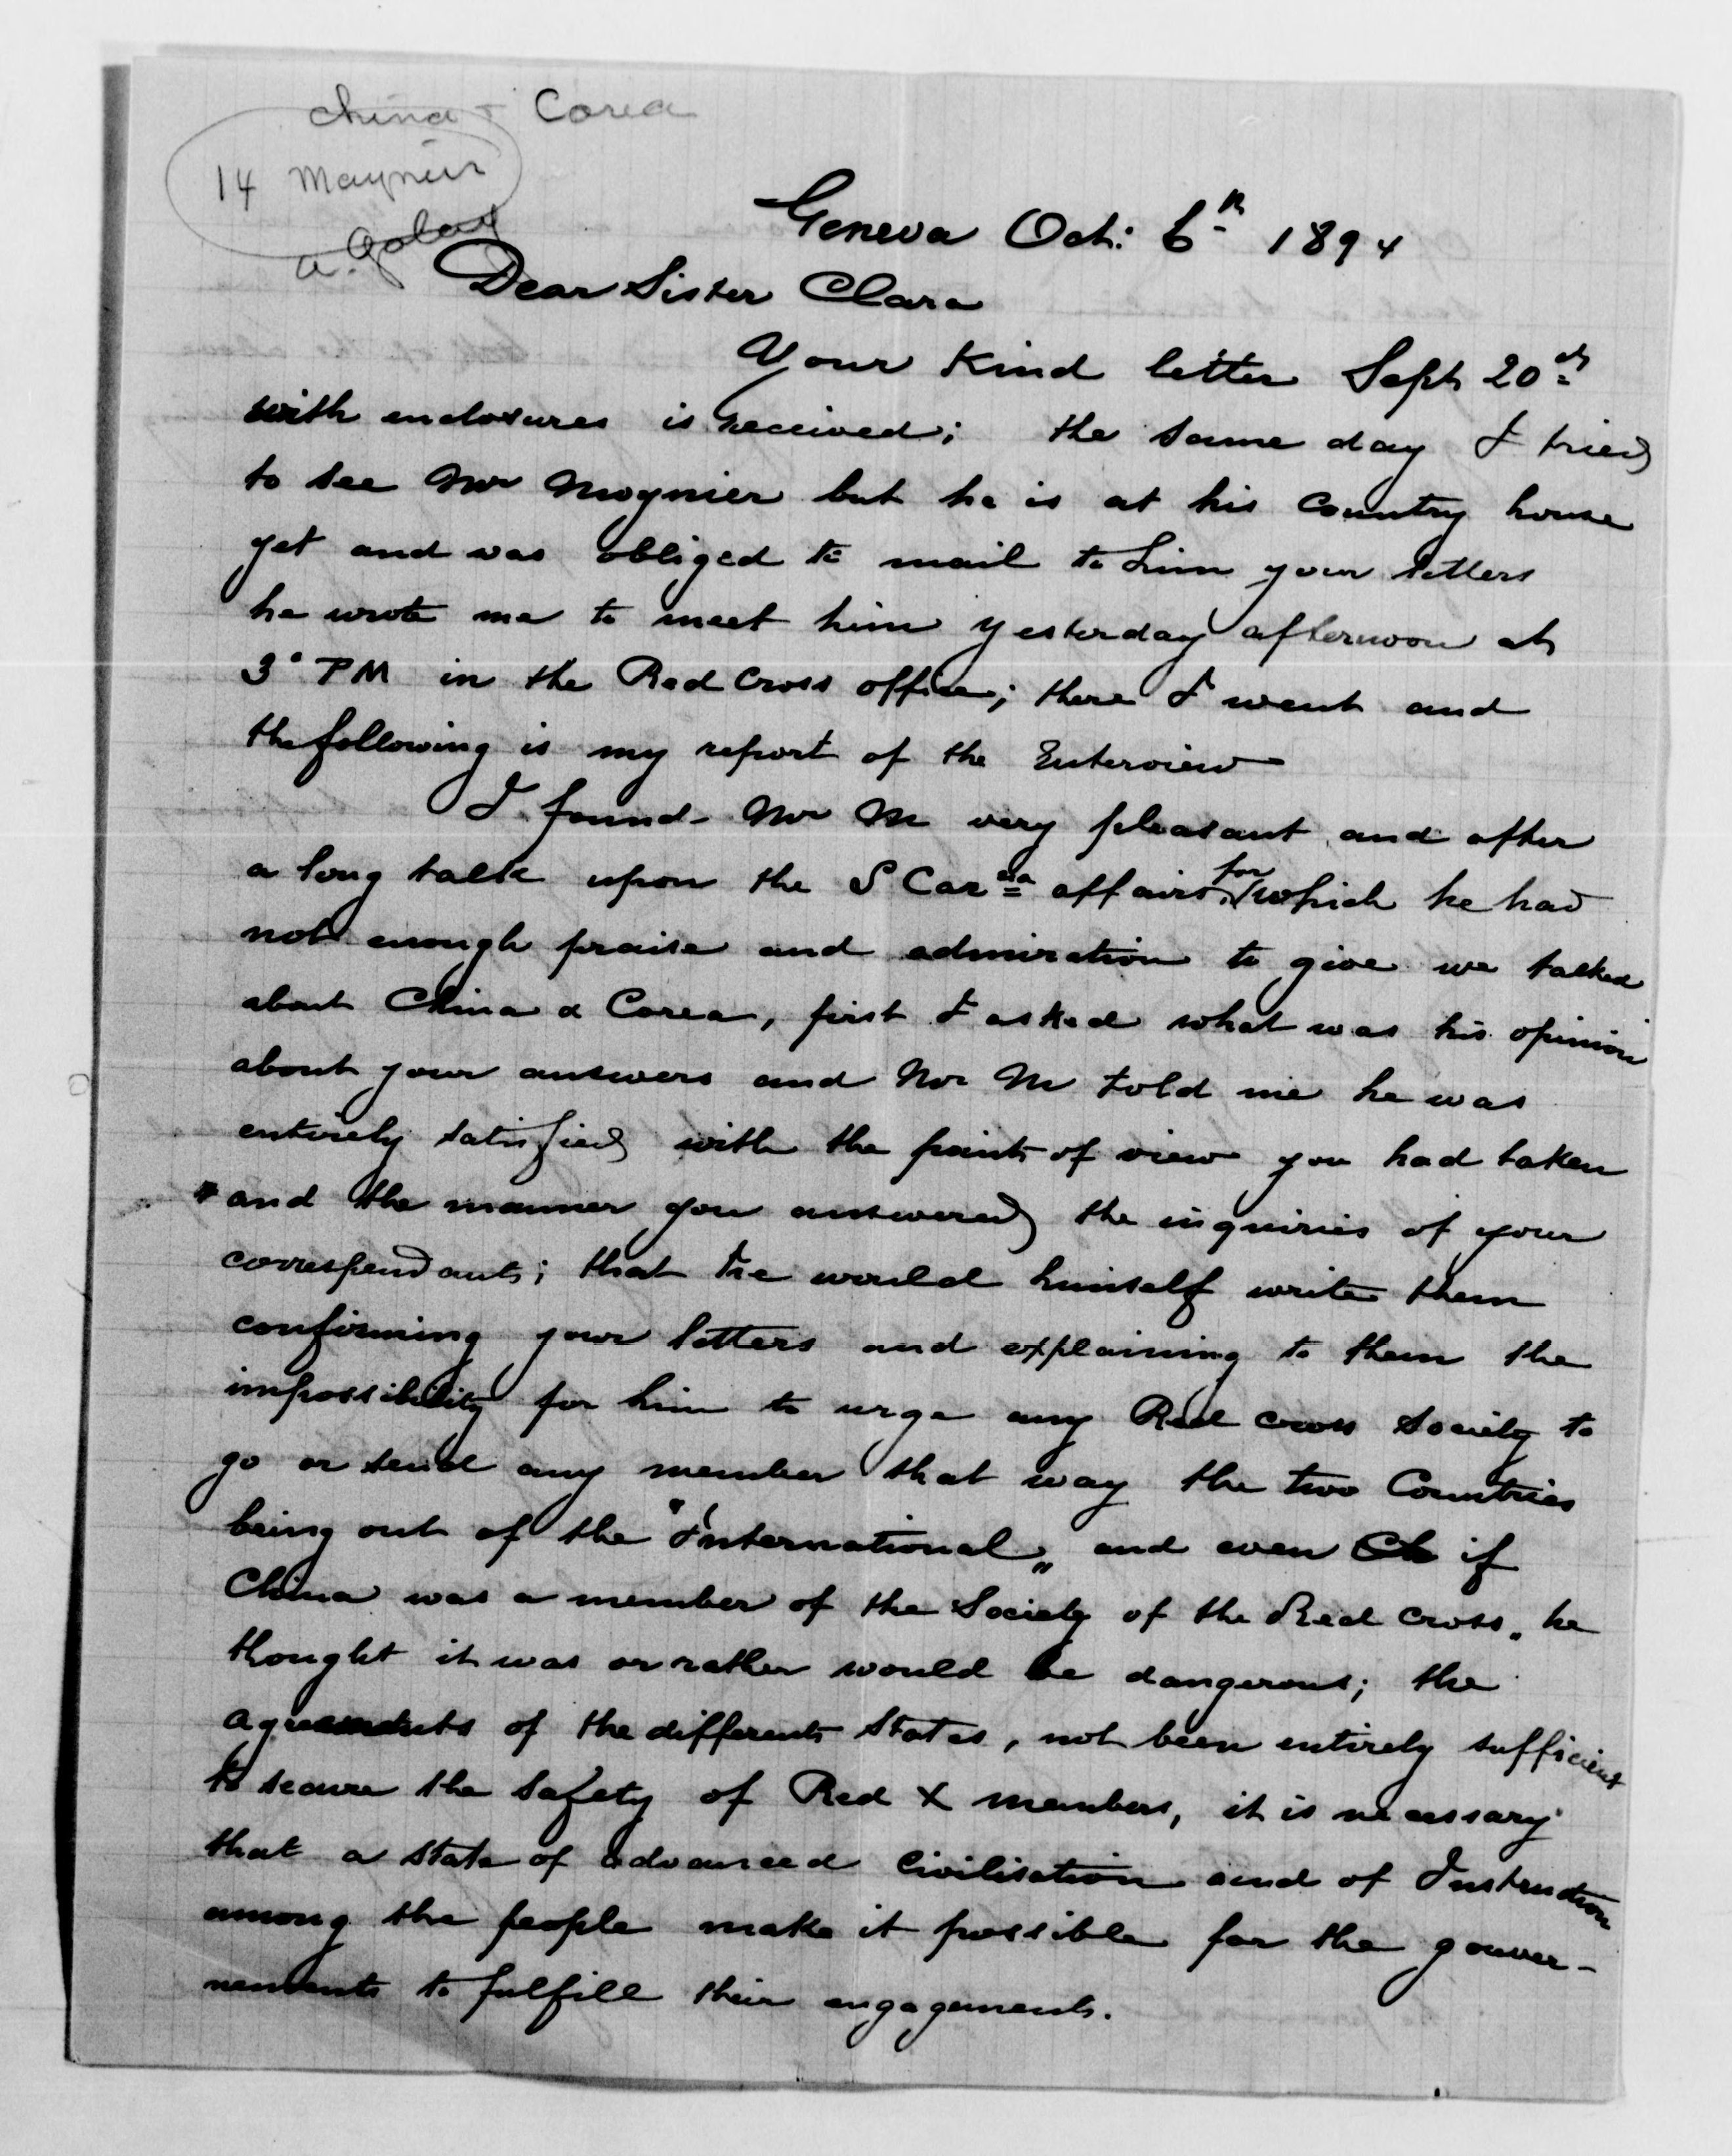 China & Corea
14 Moynier
a. Golay
Geneva Oct: 6th 1894
Dear Sister Clara
Your Kind letter Sept 20th
with enclosures is received; the same day I tried
to see Mr Moynier but he is at his Country house
yet and was obliged to mail to him your letters
he wrote me to meet him yesterday afternoon at
3° PM in the Red Cross office; there I went and
the following is my report of the Interview
I found Mr M very pleasant and after
a long talk upon the S Carna affairs, for which he had
not enough praise and admiration to give we talked
about China & Corea, first I asked what was his opinion
about your answers and Mr M told me he was
entirely satisfied with the point of view you had taken
and the manner you answered the inquiries of your
correspondants; that he would himself write them
confirming your letters and explaining to them the
impossibility for him to urge any Red cross Society to
go or send any member that way the two Countries
being out of the "International„ and even Ch if
China was a member of the Society of the Red Cross, he
thought it was or rather would be dangerous; the
agreements of the differents States, not been entirely sufficient
to secure the safety of Red X members, it is necessary
that a state of advanced Civilisation and of Instruction
among the people make it possible for the gouver-
nements to fulfill their engagements.